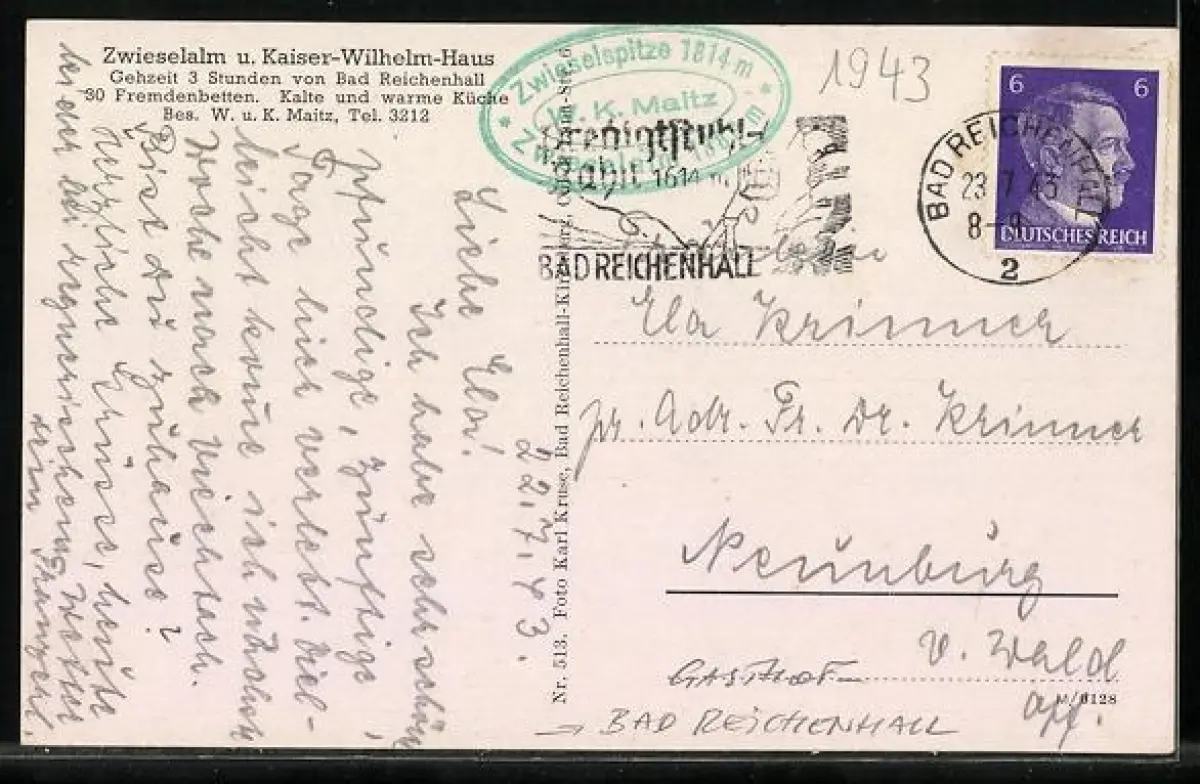 Zwieselalm u. Kaiser-Wilhelm-Haus
Gehzeit 3 Stunden von Bad Reichenhall
30 Fremdenbetten. Kalte und warme Küche
Bes. W. u. K. Maitz, Tel. 3212
* Zwieselspitze 1814 m *
W. K. Maitz
Zwieselalm
1943
6 6
DEUTSCHES REICH
BAD REICHENHALL
23.7.43
8-9
2
Predigtstuhl-
Bahn 1614 m
BAD REICHENHALL
22.7.43.
Liebe Ela!
Ich habe sehr schön
pfundige, zünftige,
Tage hier verlebt. Viel-
leicht komme ich nächste
Woche nach Viechtach.
Bist du zuhause?
Herzliche Grüsse, heute
bei regnerischem Wetter
dein
Nr. 513. Foto Karl Kruse, Bad Reichenhall-Kirchberg,
Fräulein
Ela Krinner
pr. Adr. Fr. Dr. Krinner
Neunburg
v. Wald
Opf.
M/6128
GASTHOF
→ BAD REICHENHALL